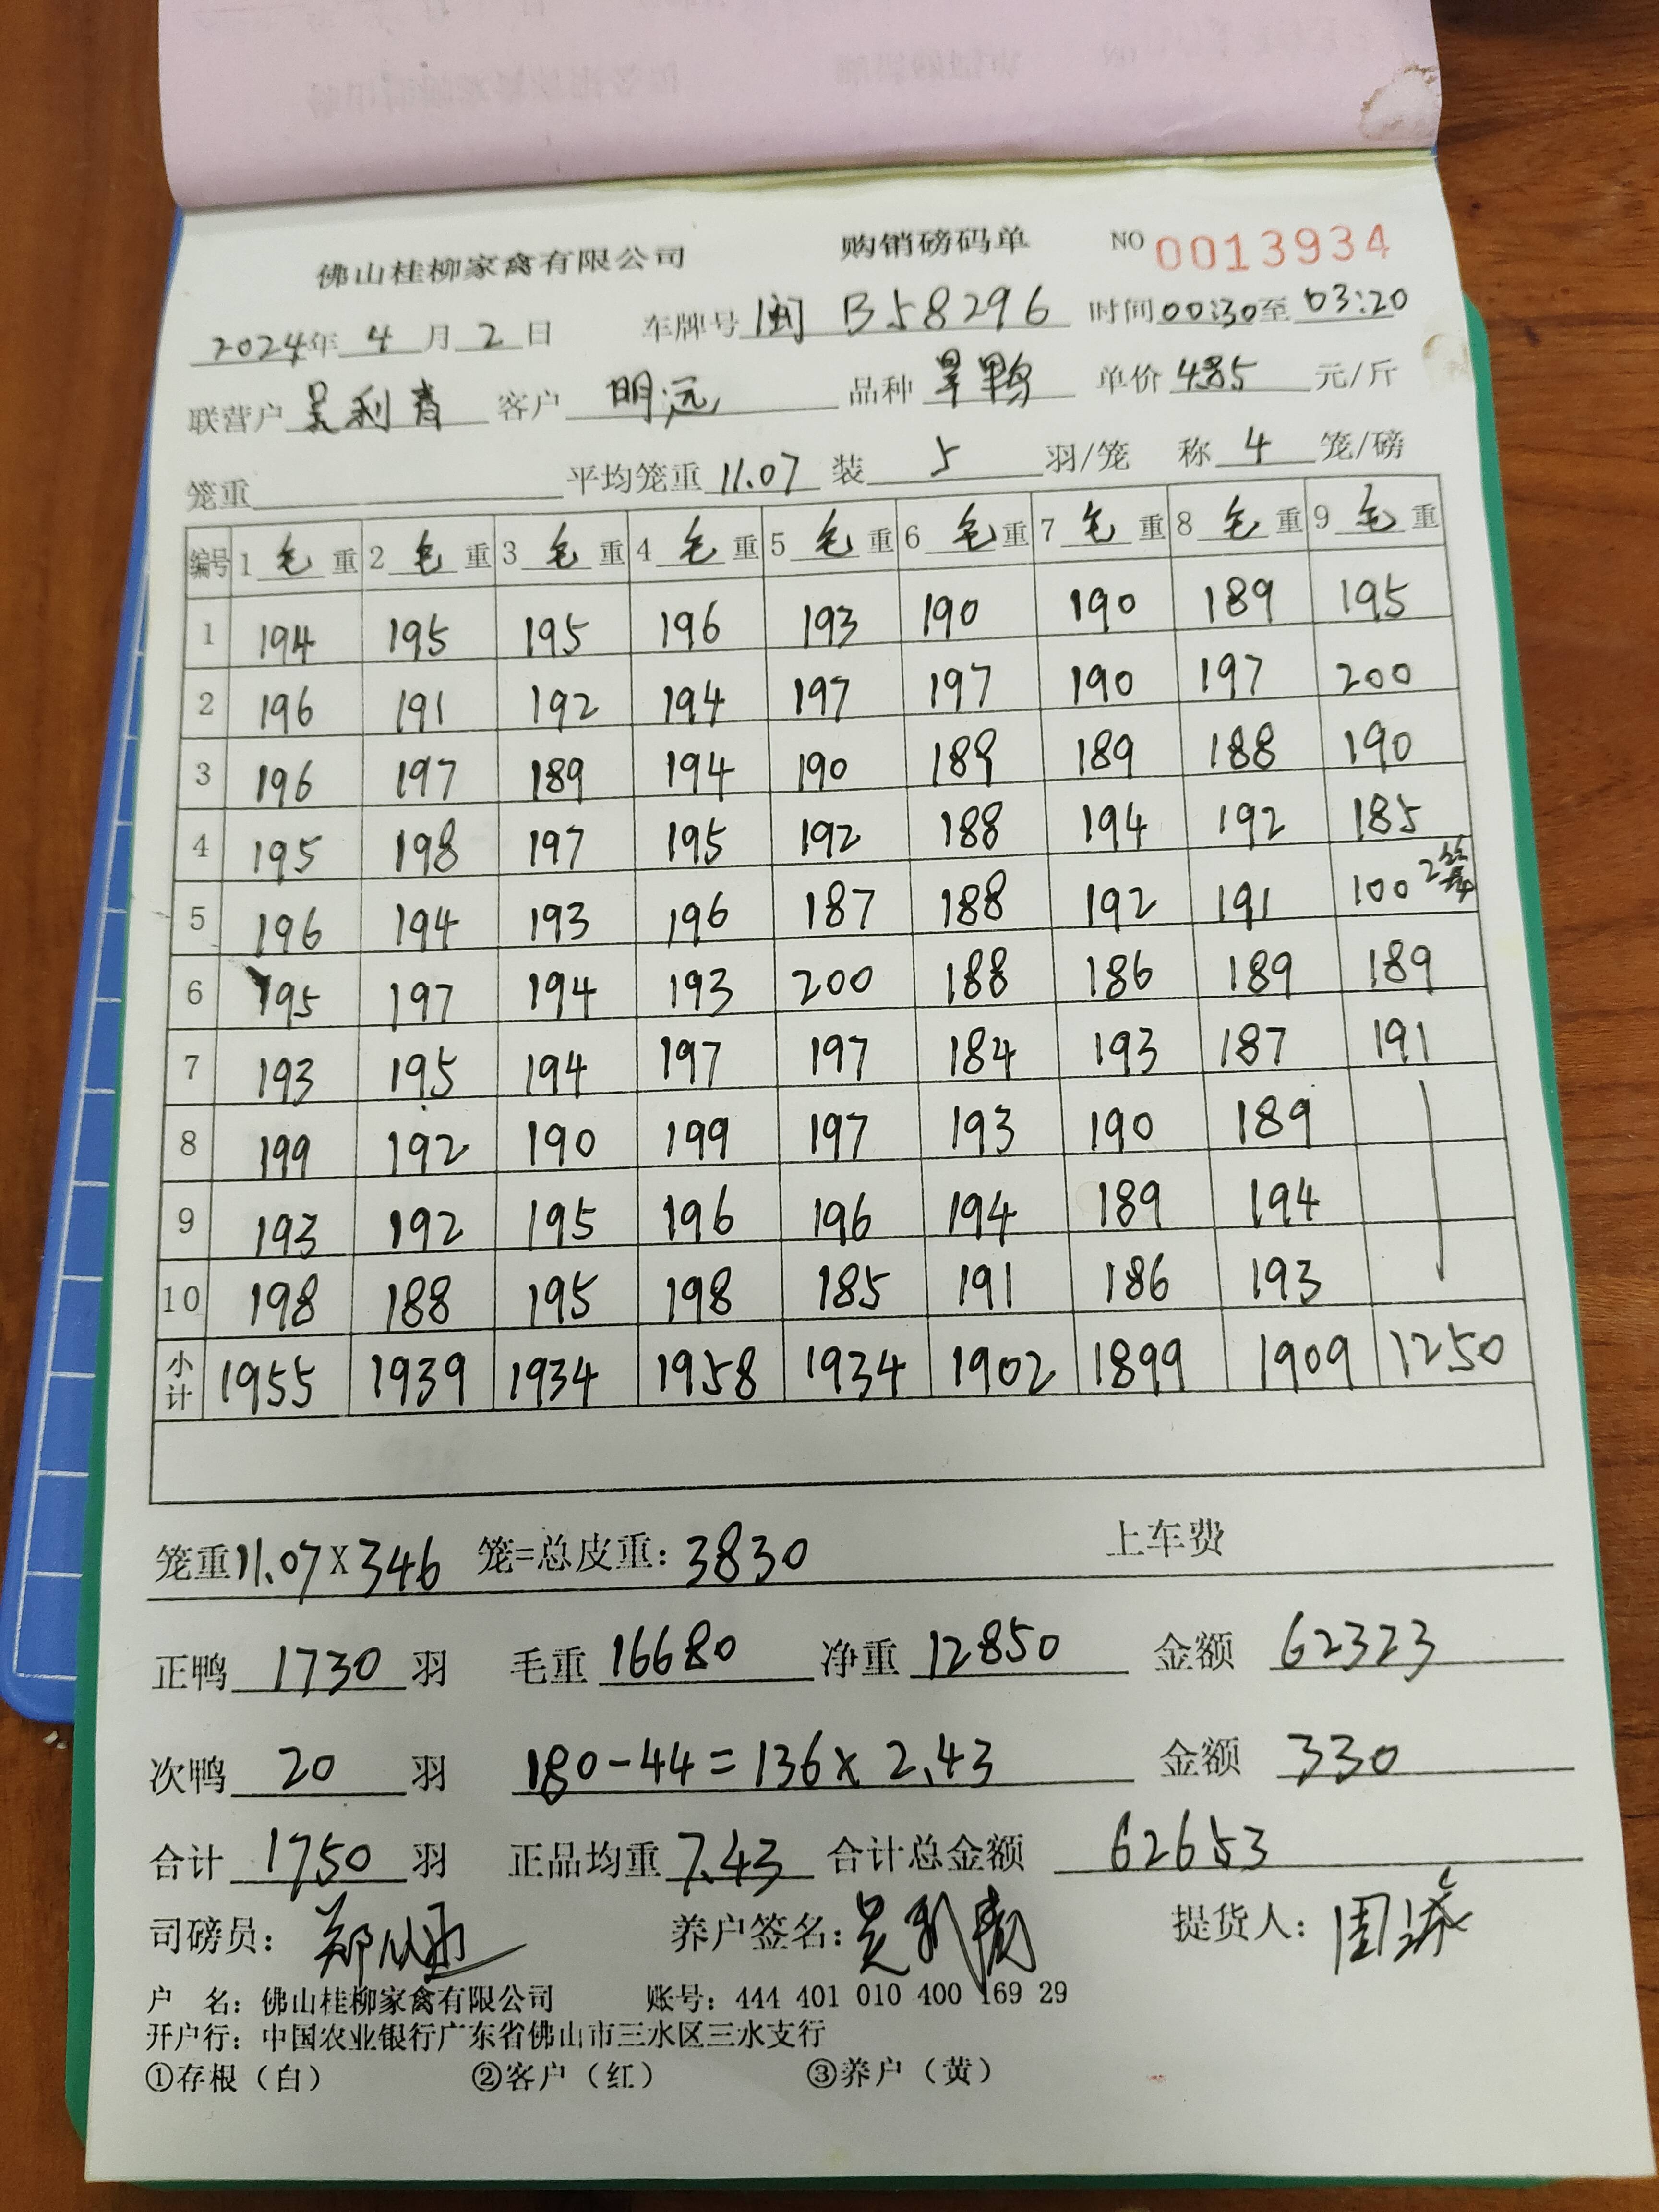 佛山桂柳家禽有限公司 购销磅码单 NO 0013934
2024年 4 月 2 日 车牌号 闽 B58296 时间 00:30 至 03:20
联营户 吴利青 客户 明远 品种 旱鸭 单价 4.85 元/斤
笼重 平均笼重 11.07 装 5 羽/笼 称 4 笼/磅
编号 1 毛 重 2 毛 重 3 毛 重 4 毛 重 5 毛 重 6 毛 重 7 毛 重 8 毛 重 9 毛 重
1 194 195 195 196 193 190 190 189 195
2 196 191 192 194 197 197 190 197 200
3 196 197 189 194 190 189 189 188 190
4 195 198 197 195 192 188 194 192 185
5 196 194 193 196 187 188 192 191 100 2笼
6 195 197 194 193 200 188 186 189 189
7 193 195 194 197 197 184 193 187 191
8 199 192 190 199 197 193 190 189
9 193 192 195 196 196 194 189 194
10 198 188 195 198 185 191 186 193
小计 1955 1939 1934 1958 1934 1902 1899 1909 1250
笼重 11.07 X 346 笼=总皮重: 3830 上车费
正鸭 1730 羽 毛重 16680 净重 12850 金额 62323
次鸭 20 羽 180-44=136x2.43 金额 330
合计 1750 羽 正品均重 7.43 合计总金额 62653
司磅员: 养户签名: 吴利青 提货人:
户 名: 佛山桂柳家禽有限公司 账号: 444 401 010 400 169 29
开户行: 中国农业银行广东省佛山市三水区三水支行
①存根（白） ②客户（红） ③养户（黄）